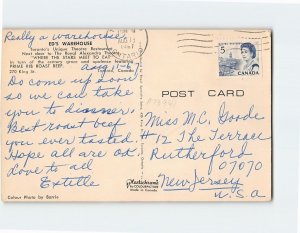 Really a warehouse
ED'S WAREHOUSE
Toronto's Unique Theatre Restaurant
Next door to The Royal Alexandra Theatre
"WHERE THE STARS MEET TO EAT"
PRIME RIB ROAST BEEF.
270 King St. Toronto, Canada.
Aug 1-67
Do come up soon
so we can take
you to dinner.
Best roast beef
you ever tasted.
Hope all are ok.
Love to all
Estelle
Colour Photo by Barrie
Plastichrome
Made in Canada
5
CANADA
POST CARD
Miss M.C. Goode
#12 The Terrace
Rutherford
07070
New Jersey
U.S.A